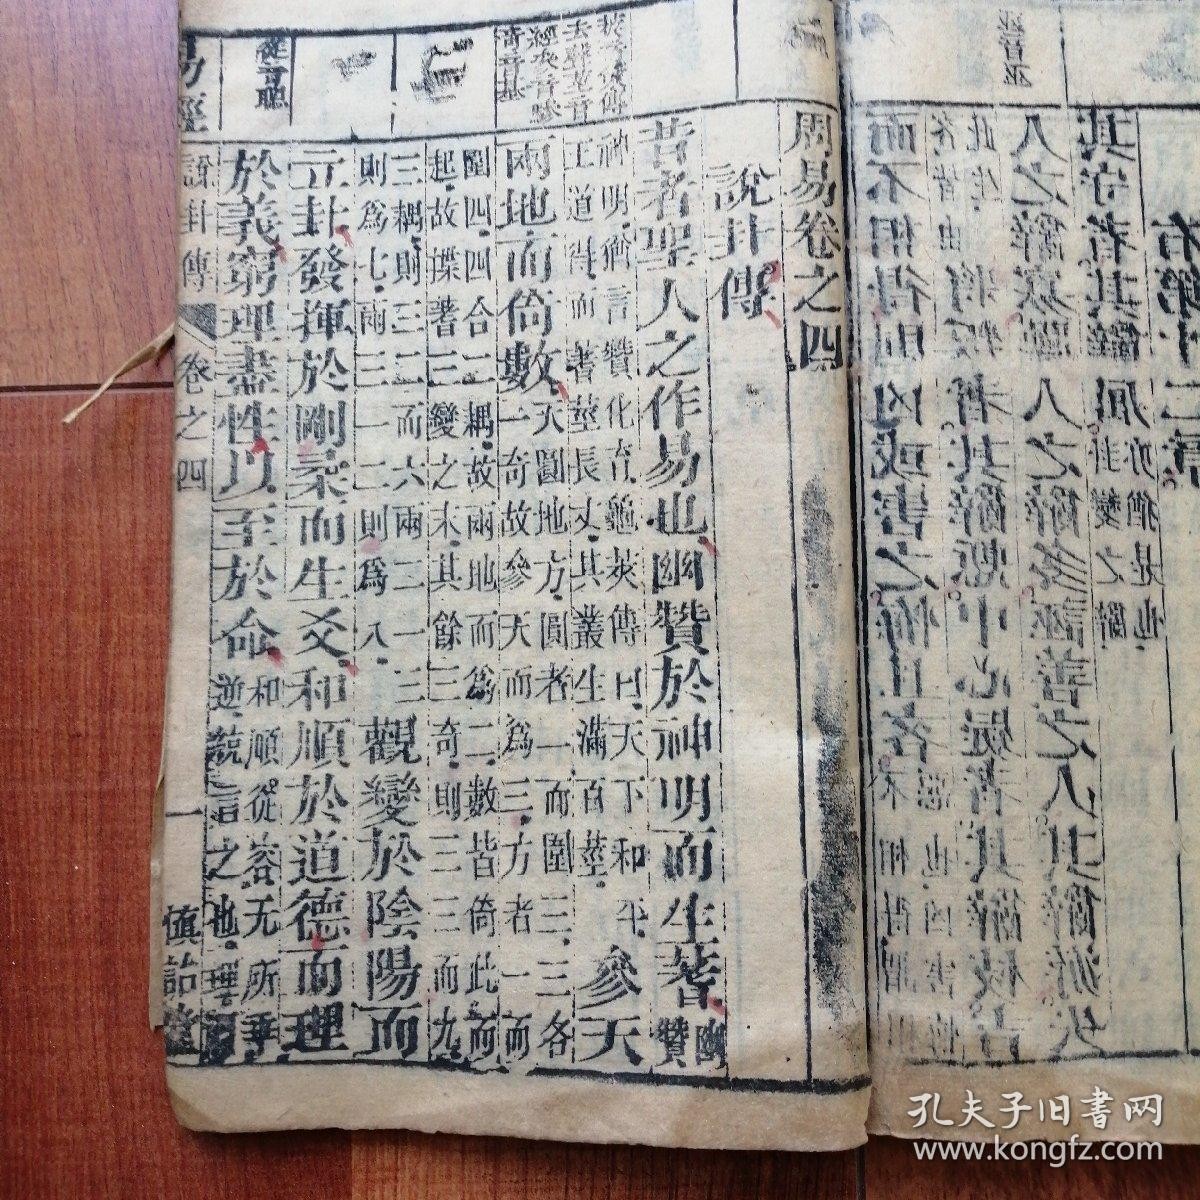 而不相得則凶或害之悔且吝
將叛者其辭慙中心疑者其辭枝吉
人之辭寡躁人之辭多誣善之人其辭游失
其守者其辭屈
卦爻之辭
亦猶是也
右第十二章
周易卷之四
說卦傳
昔者聖人之作易也幽贊於神明而生蓍
幽贊
神明猶言贊化育龜筴傳曰天下和平
王道得而蓍莖長丈其叢生滿百莖
參天
兩地而倚數
天圓地方圓者一而圍三三各
一奇故參天而爲三方者一而
圍四四合二耦故兩地而爲二數皆倚此而
起故揲蓍三變之末其餘三奇則三三而九
三耦則三二而六兩二一三
則爲七兩三一二則爲八
觀變於陰陽而
立卦發揮於剛柔而生爻和順於道德而理
於義窮理盡性以至於命
和順從容无所乖
逆統言之也理
從音聰
奇音基
易經
說卦傳
卷之四
一
慎詒堂
孔夫子旧书网
www.kongfz.com